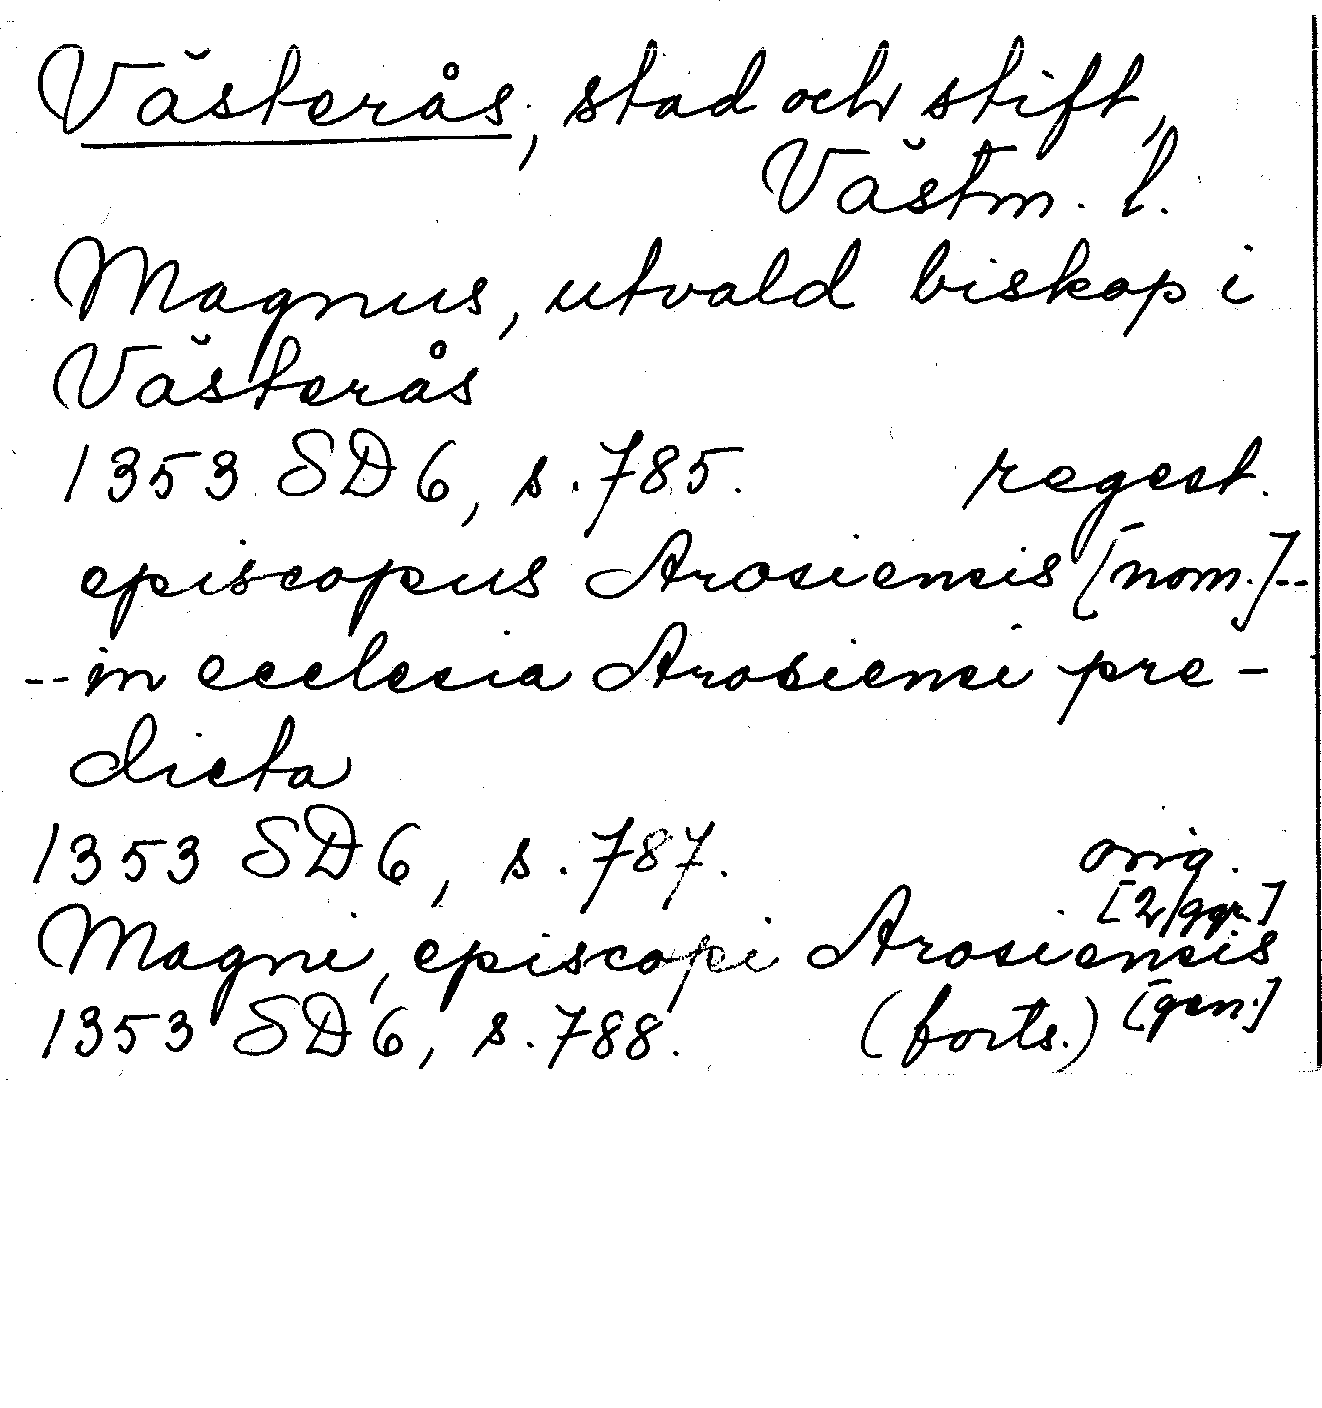 Västerås, stad och stift,
Västm. l.
Magnus, utvald biskop i
Västerås
1353 SD 6, s. 785. regest.
episcopus Arosiensis [nom.]--
--in ecclesia Arosiensi pre-
dicta
1353 SD 6, s. 787. orig.
[2 ggr.]
Magni, episcopi Arosiensis
1353 SD 6, s. 788. (forts.) [gen.]